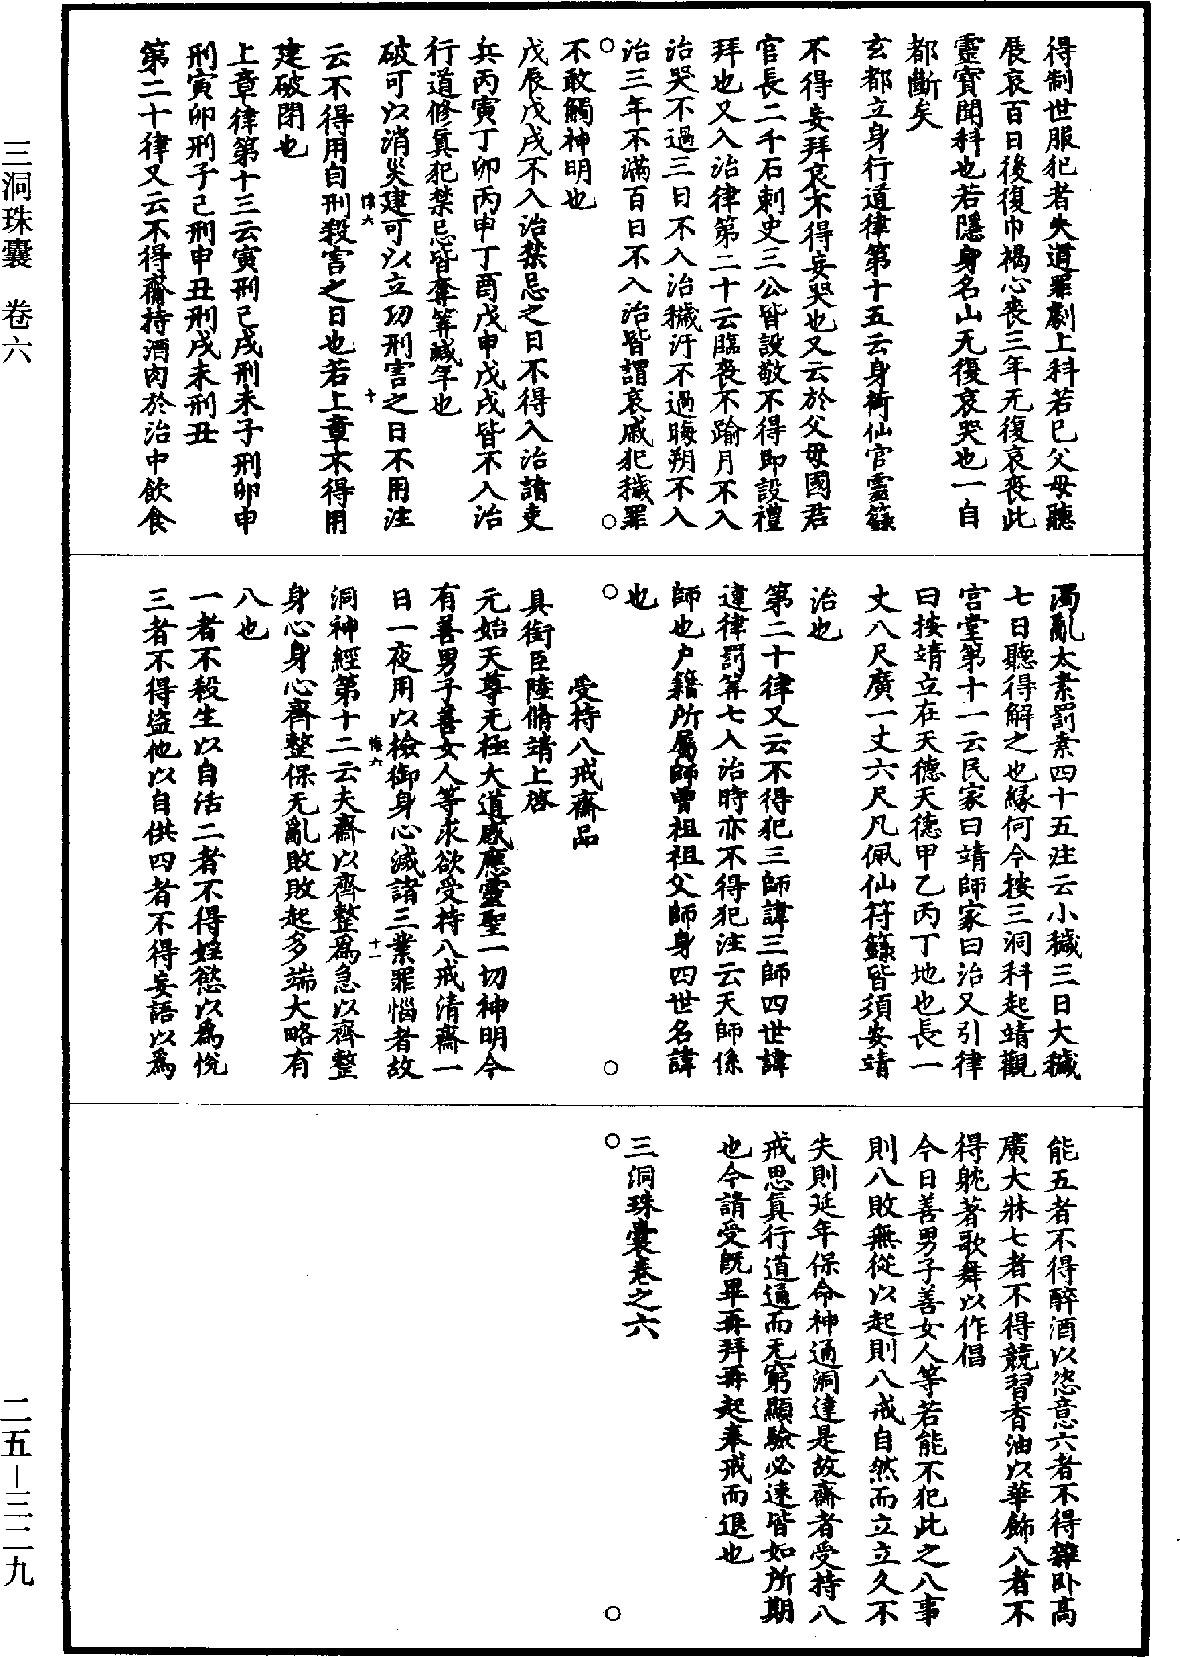 得制世服犯者失道罪劇上科若已父母聽
展哀百日後復巾褐心喪三年无復哀喪此
靈寶開科也若隱身名山无復哀哭也一自
都斷矣
玄都立身行道律第十五云身荷仙官靈籙
不得妄拜哀不得妄哭也又云於父母國君
官長二千石剌史三公皆設敬不得即設禮
拜也又入治律第二十云臨喪不踰月不入
治哭不過三日不入治穢汙不過晦朔不入
治三年不滿百日不入治皆謂哀戚犯穢罪
不敢觸神明也
戊辰戊戌不入治禁忌之日不得入治請吏
兵丙寅丁卯丙申丁酉戊申戊戌皆不入治
行道修真犯禁忌皆奪筭減年也
破可以消災建可以立功刑害之日不用注
云不得用自刑殺害之日也若上章不得用
建破閉也
上章律第十三云寅刑巳戌刑未子刑卯申
刑寅卯刑子巳刑申丑刑戌未刑丑
第二十律又云不得齎持酒肉於治中飲食
濁亂太素罰素四十五注云小穢三日大穢
七日聽得解之也緣何今按三洞科起靖觀
宮堂第十一云民家曰靖師家曰治又引律
曰按靖立在天德天德甲乙丙丁地也長一
丈八尺廣一丈六尺凡佩仙符籙皆須安靖
治也
第二十律又云不得犯三師諱三師四世諱
違律罰筭七入治時亦不得犯注云天師係
師也户籍所屬師曾祖祖父師身四世名諱
也
受持八戒齋品
具銜臣陸脩靖上啓
元始天尊无極大道感應靈聖一切神明今
有善男子善女人等求欲受持八戒清齋一
日一夜用以檢御身心滅諸三業罪惱者故
洞神經第十二云夫齋以齊整為急以齊整
身心身心齊整保无亂敗敗起多端大略有
八也
一者不殺生以自活二者不得婬慾以為悅
三者不得盜他以自供四者不得妄語以為
能五者不得醉酒以恣意六者不得雜卧高
廣大牀七者不得競習香油以華飾八者不
得躭著歌舞以作倡
今日善男子善女人等若能不犯此之八事
則八敗無從以起則八戒自然而立立久不
失則延年保命神通洞達是故齋者受持八
戒思真行道通而无窮顯驗必速皆如所期
也今請受既畢再拜再起奉戒而退也
三洞珠囊卷之六
三洞珠囊 卷六
二五－三二九